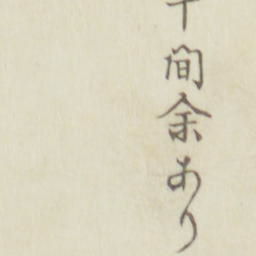 間余あり